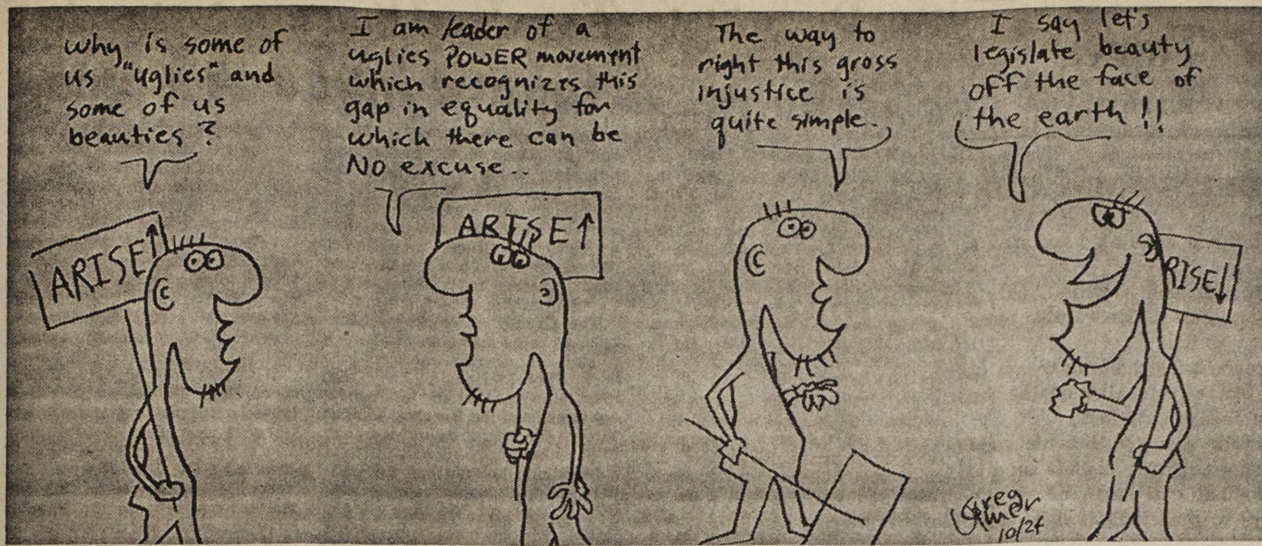 why is some of
us "uglies" and
some of us
beauties?
ARISE↑
I am leader of a
uglies POWER movement
which recognizes this
gap in equality for
which there can be
No excuse..
ARISE↑
The way to
right this gross
injustice is
quite simple.
I say let's
legislate beauty
off the face of
the earth!!
RISE↓
Greg
10/24